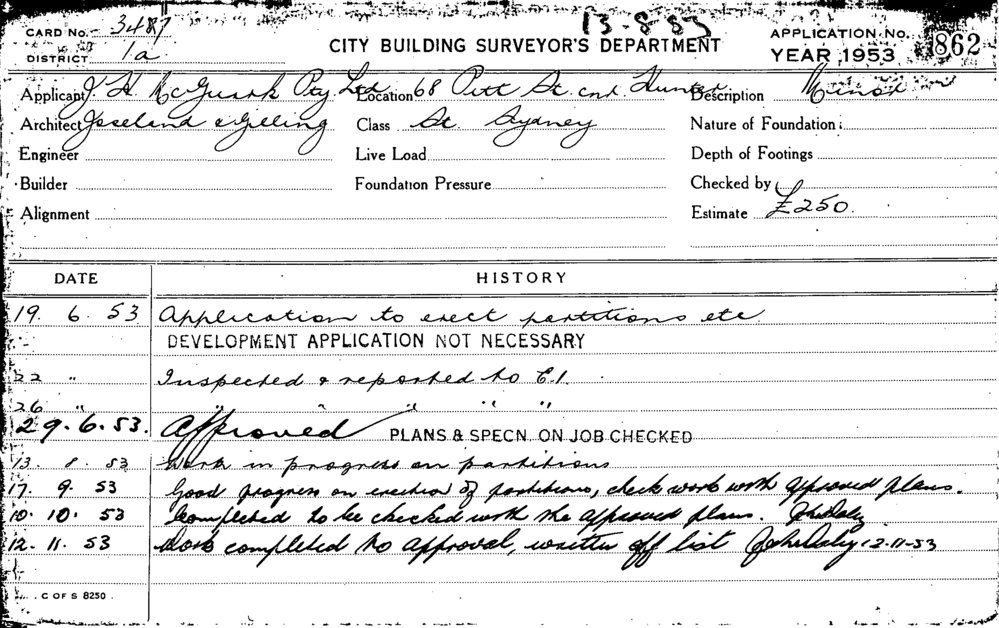 13-8-53
CARD No. 3487
CITY BUILDING SURVEYOR'S DEPARTMENT
APPLICATION No. 862
DISTRICT 1a
YEAR 1953
Applicant J. H. McGuark Pty Ltd Location 68 Pitt St. cnr Hunter Description Minor
Architect Joseland & Gilling Class St. Sydney Nature of Foundation
Engineer Live Load Depth of Footings
Builder Foundation Pressure Checked by
Alignment Estimate £250.
DATE HISTORY
19. 6. 53 Application to erect partitions etc
DEVELOPMENT APPLICATION NOT NECESSARY
22 " Inspected & reported to C.I.
26 " " " " "
29. 6. 53. Approved PLANS & SPECN. ON JOB CHECKED
13. 8. 53 Work in progress on partitions
17. 9. 53 Good progress on erection of partitions, check work with approved plans.
10. 10. 53 Completed to be checked with the approved plans. John Daly
12. 11. 53 Work completed to approval, written off list John Daly 12-11-53
C OF S 8250